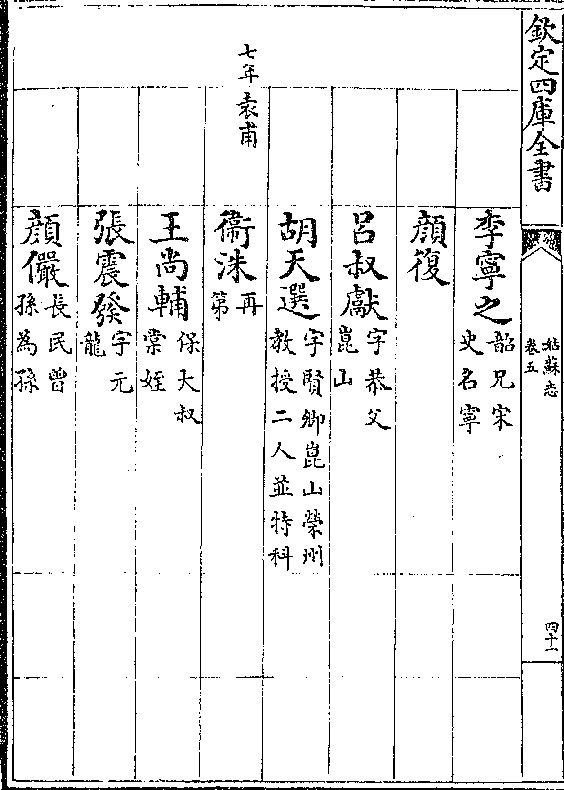 欽定四庫全書
姑蘇志
卷五
四十一
李寧之韶兄宋
史名寧
顔復
呂叔獻字恭父
崑山
胡天選字賢卿崑山榮州
教授二人並特科
七年袁甫
衞洙再
第
王尚輔保大叔
棠姪
張震發字元
龍
顔儼長民曾
孫為孫